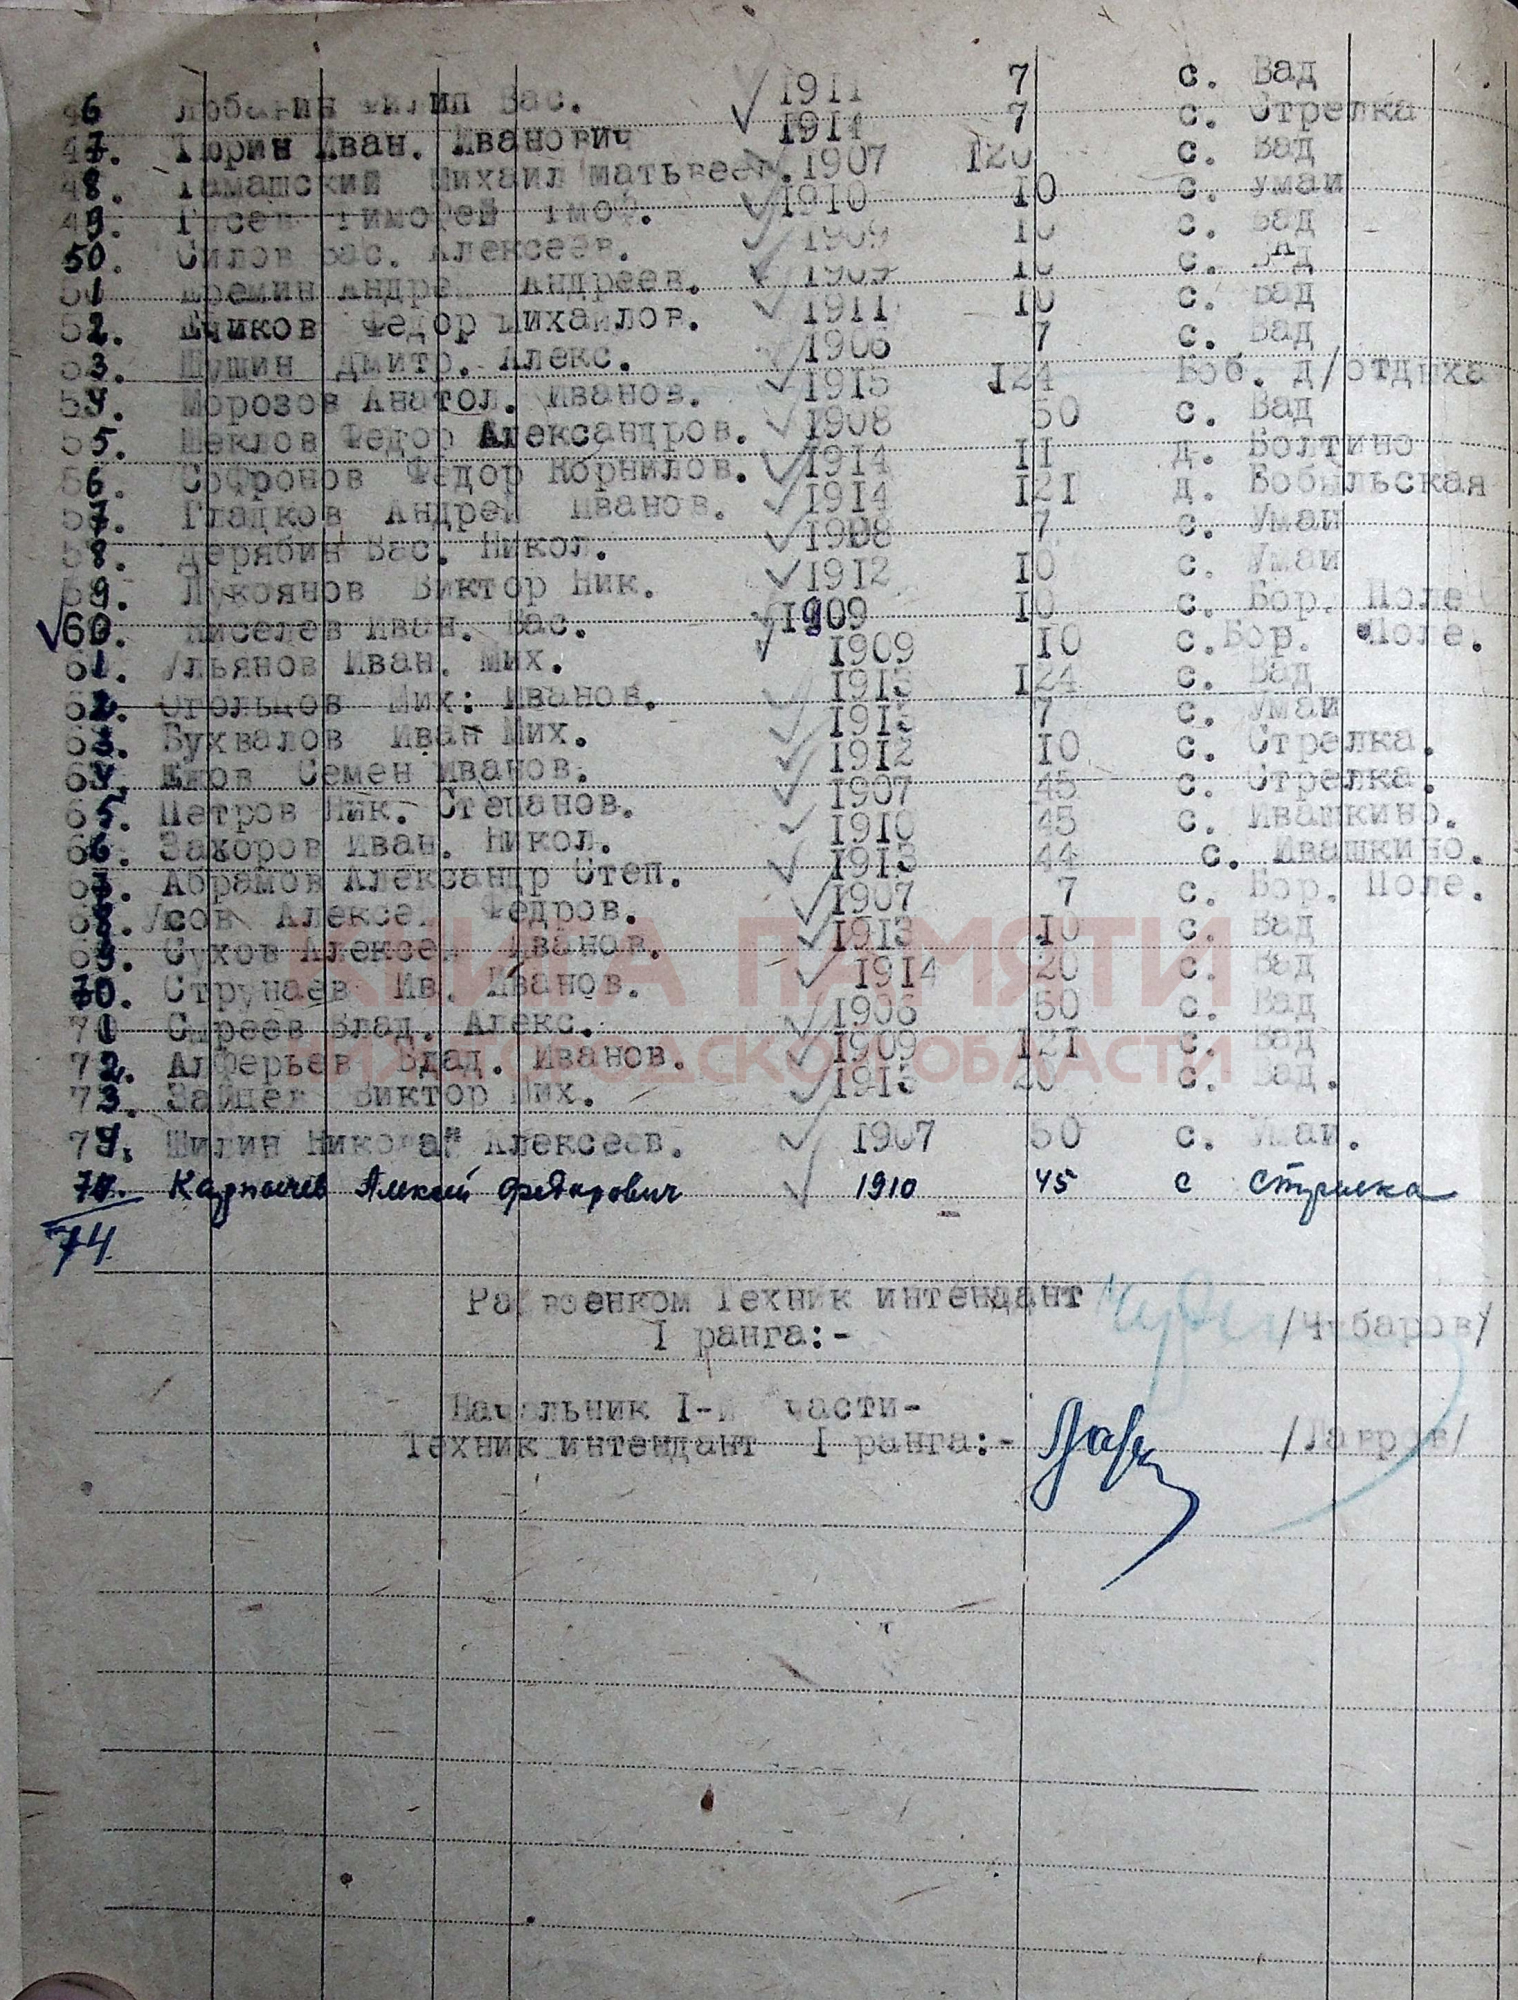 46 Лобанин Филип Вас. 1911 7 с. Вад
47. Тюрин Иван. Иванович 1914 7 с. Стрелка
48. Тамашский Михаил Матьвеев. 1907 120 с. Вад
49. Гусев Тимофей Тмоф. 1910 10 с. Умаи
50. Силов Вас. Алексеев. 1909 10 с. Вад
51 Еремин Андрей Андреев. 1909 10 с. Вад
52. Ечиков Федор Михаилов. 1911 10 с. Вад
53. Шушин Дмитр. Алекс. 1906 7 с. Вад
54. Морозов Анатол. Иванов. 1915 124 Боб. д/отдыха
55. Шеклов Федор Александров. 1908 50 с. Вад
56. Софронов Федор Корнилов. 1914 11 д. Болтино
57. Гладков Андрей Иванов. 1914 121 д. Бобыльская
58. Дерябин Вас. Никол. 1908 7 с. Умаи
59. Лукоянов Виктор Ник. 1912 10 с. Умаи
60. Киселев Иван. Вас. 1909 10 с. Бор. Поле
61. Ульянов Иван. Мих. 1909 10 с. Бор. Поле.
62. Стольцов Мих: Иванов. 1915 124 с. Вад
63. Бухвалов Иван Мих. 1915 7 с. Умаи
64. Ежов Семен Иванов. 1912 10 с. Стрелка.
65. Петров Ник. Степанов. 1907 45 с. Стрелка.
66. Захоров Иван. Никол. 1910 45 с. Ивашкино.
67. Абрамов Александр Степ. 1915 44 с. Ивашкино.
68. Усов Алексей Федров. 1907 7 с. Бор. Поле.
69. Сухов Алексей Иванов. 1913 10 с. Вад
70. Струнаев Ив. Иванов. 1914 20 с. Вад
71 Сыреев Влад. Алекс. 1906 50 с. Вад
72. Алферьев Влад. Иванов. 1909 121 с. Вад
73. Зайцев Виктор Мих. 1915 20 с. Вад.
74. Шилин Николай Алексеев. 1907 50 с. Умаи.
Карпычев Алексей Федорович 1910 45 с Стрелка
74.
Райвоенком Техник интендант
I ранга:- /Чубаров/
Начальник I-й части-
Техник интендант I ранга:- /Лавров/
КНИГА ПАМЯТИ
НИЖЕГОРОДСКОЙ ОБЛАСТИ